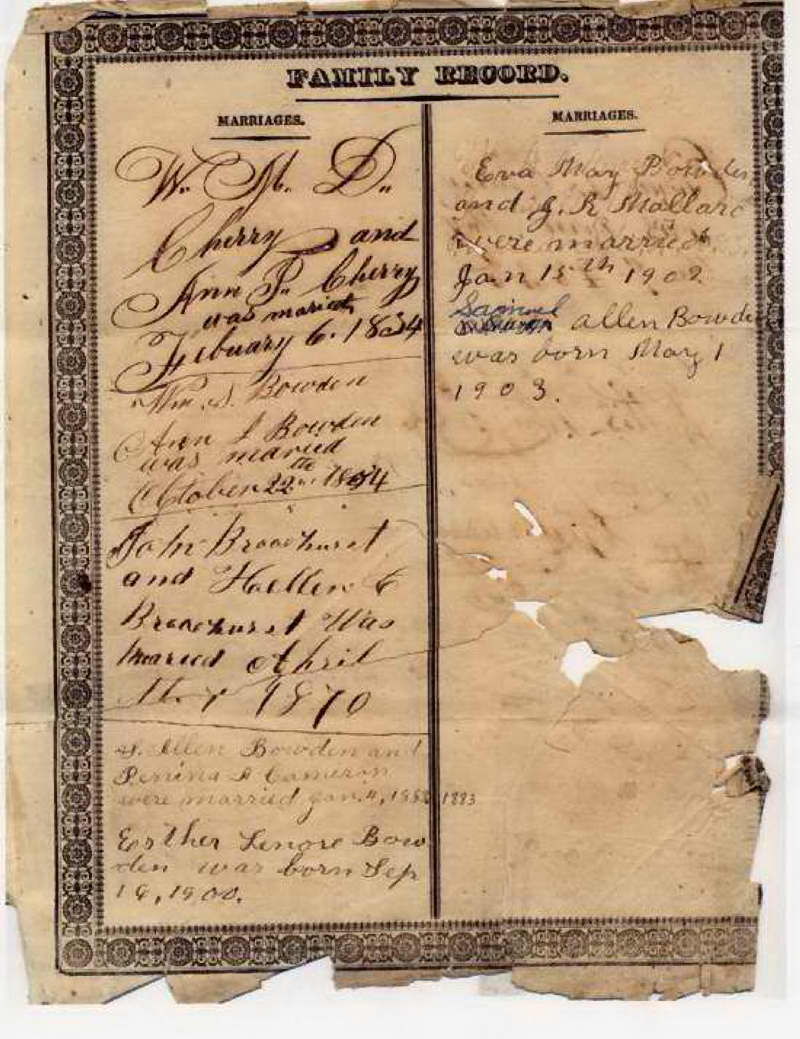 FAMILY RECORD.
MARRIAGES.
W. M. D.
Cherry and
Ann P. Cherry
was maried
Febuary 6. 1834
Wm. S. Bowden
Ann I Bowden
was maried
October 22 1854
John Broadhurst
and Hellen C
Broadhurst Was
Maried April
1870
S. Allen Bowden and
Penina A Cameron
were married Jan. 4, 1883 1883
Esther Lenore Bow
den was born Sep
19, 1900.
MARRIAGES.
Eva May Bowden
and J. R Mallard
were married
Jan 15th 1902
Samuel
Allen Bowde
was born May 1
1903.